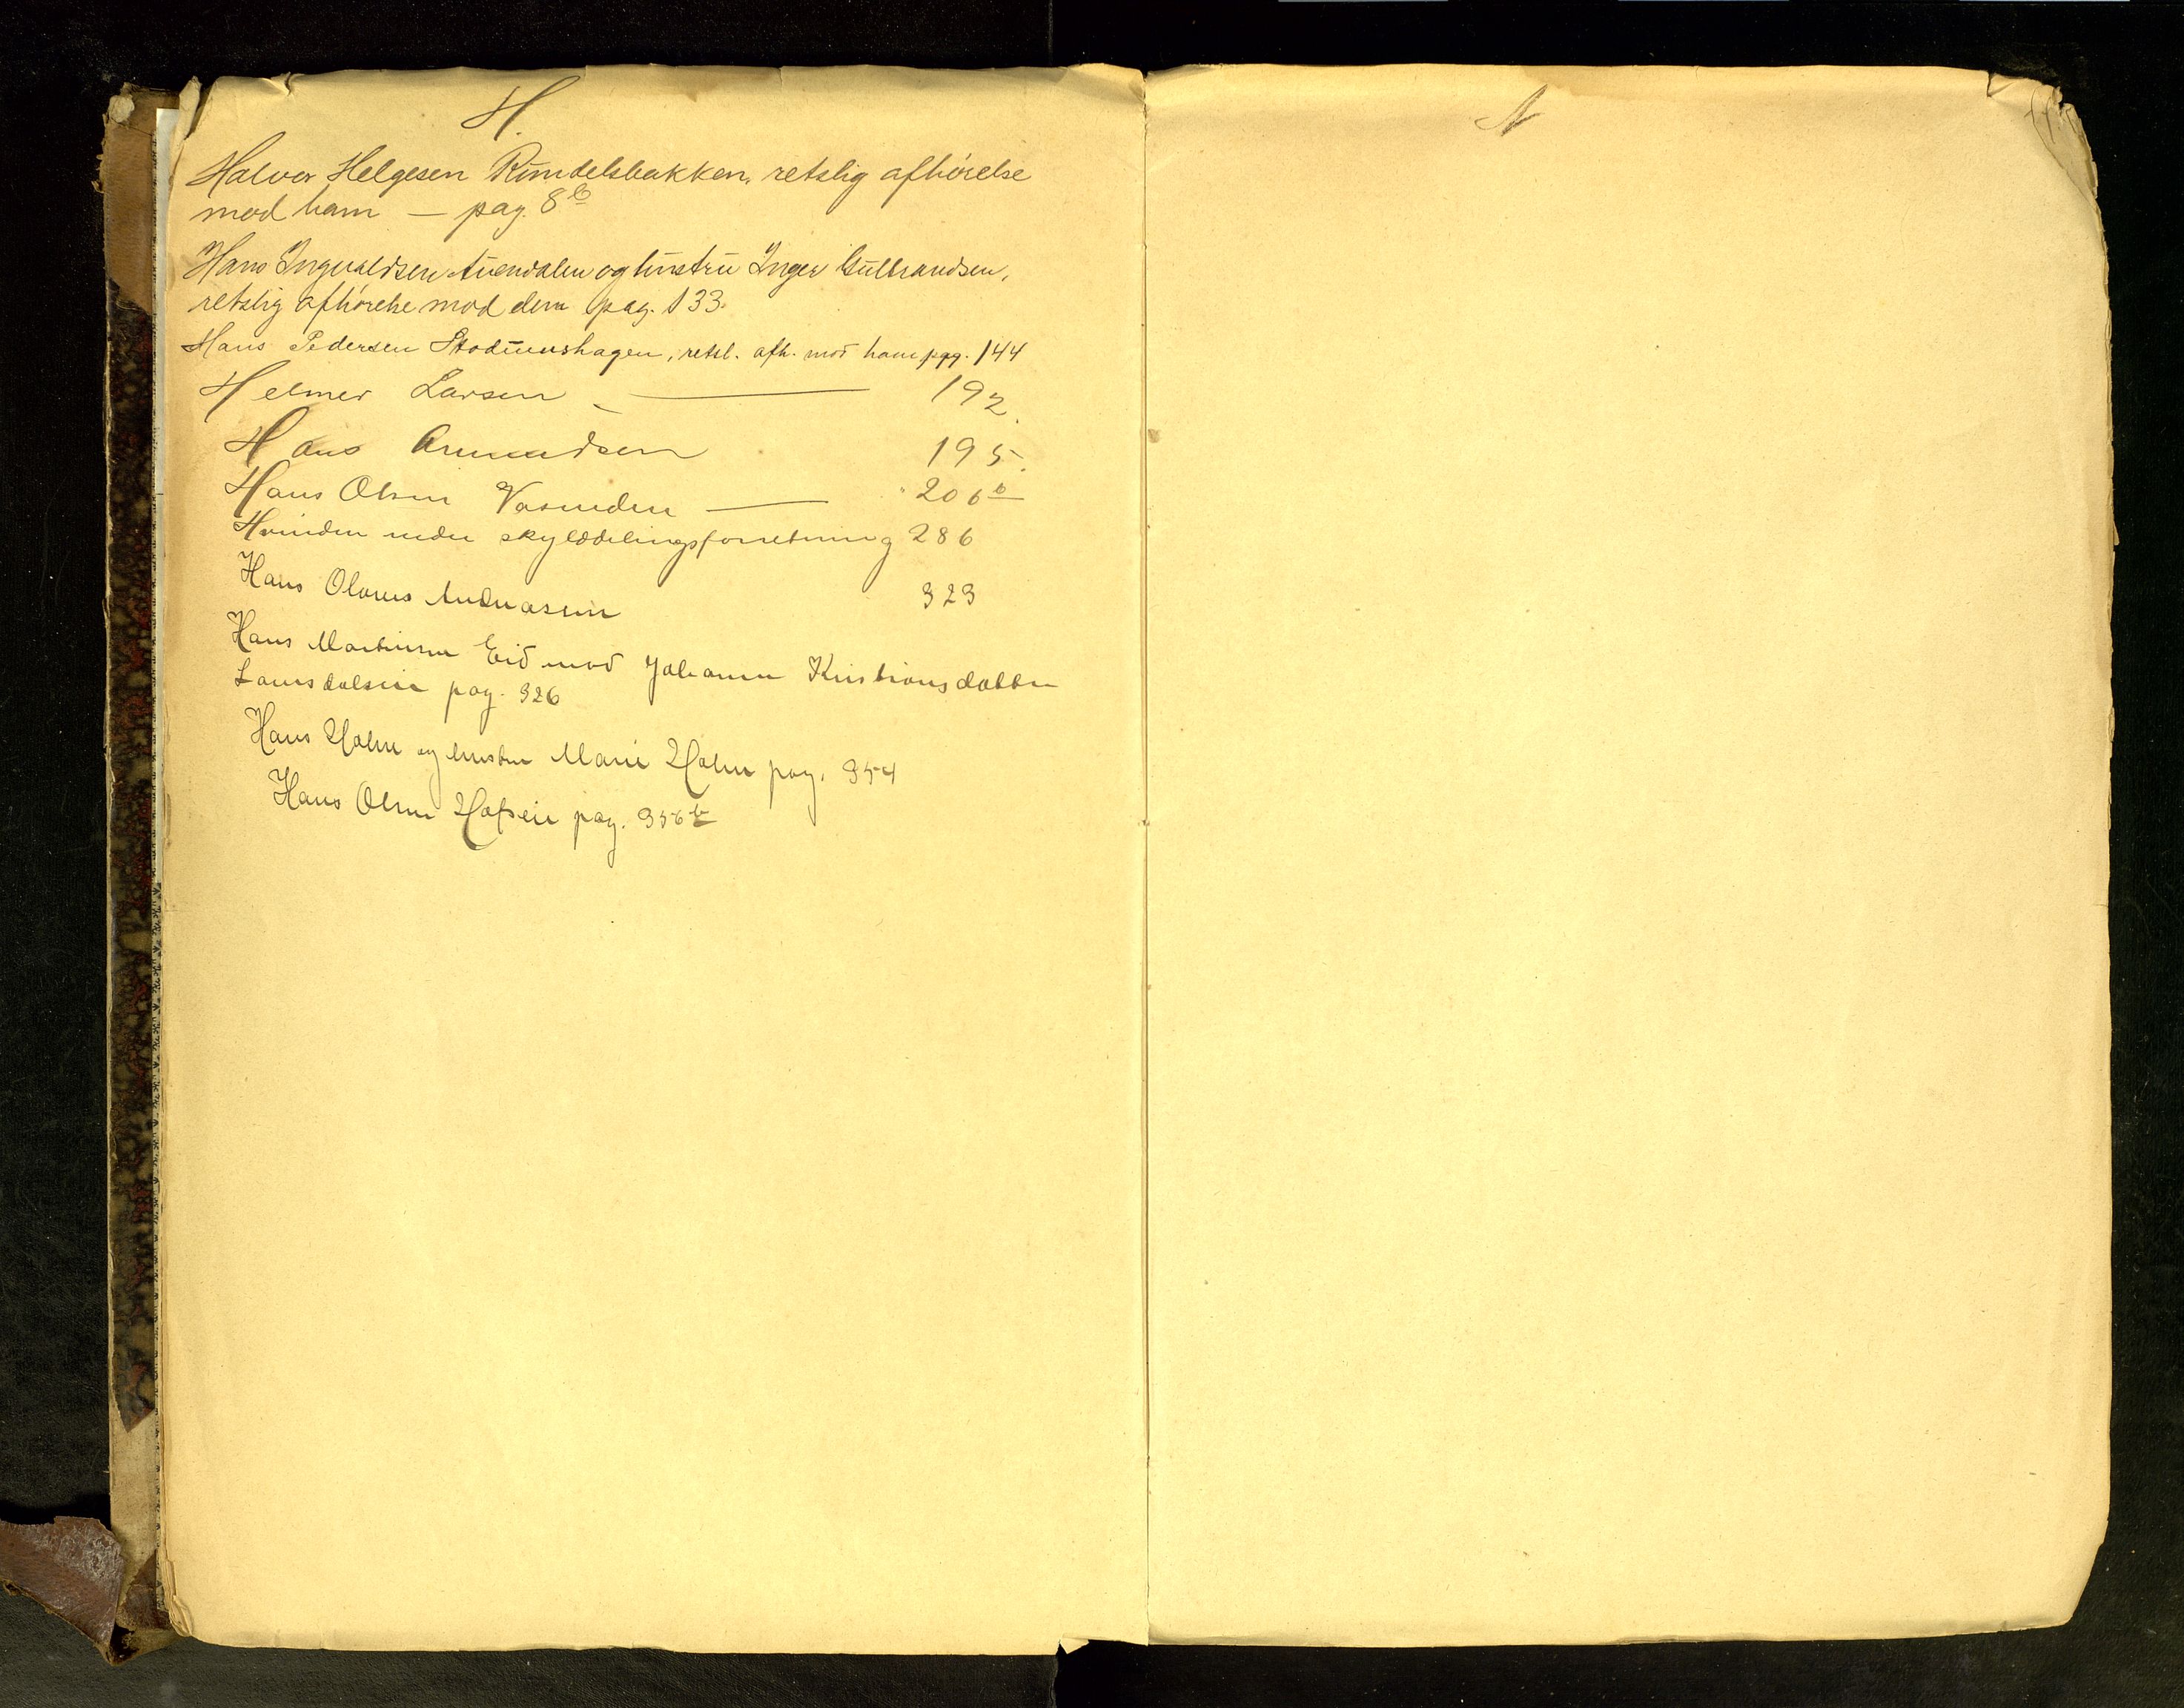 H.
Halvor Helgesen Rundelsbakken, retslig afhørelse
mod ham — pag. 8 b
Hans Ingvaldsen Tuendalen og hustru Inger Gulbrandsen,
retslig afhørelse mod dem pag. 133.
Hans Pedersen Stadumshagen, retsl. afh. mod ham pag. 144
Helmer Larsen — 192.
Hans Amundsen 195.
Hans Olsen Vasenden — 206 b
Hvinden nedre skylddelingsforretning 286
Hans Olaves Andreasen 323
Hans Martinsen Eid mod Johanne Kristiansdatter
pag. 326
Hans Holm og hustru Marie Holm pag. 354
Hans Olsen Hofseie pag. 356 b
N